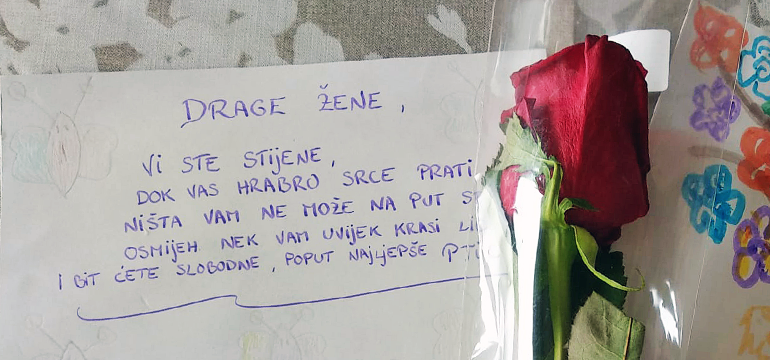 DRAGE ŽENE,
VI STE STIJENE,
DOK VAS HRABRO SRCE PRATI
NIŠTA VAM NE MOŽE NA PUT
OSMIJEH NEK VAM UVIJEK KRASI
I BIT ĆETE SLOBODNE, POPUT NAJLJEPŠE